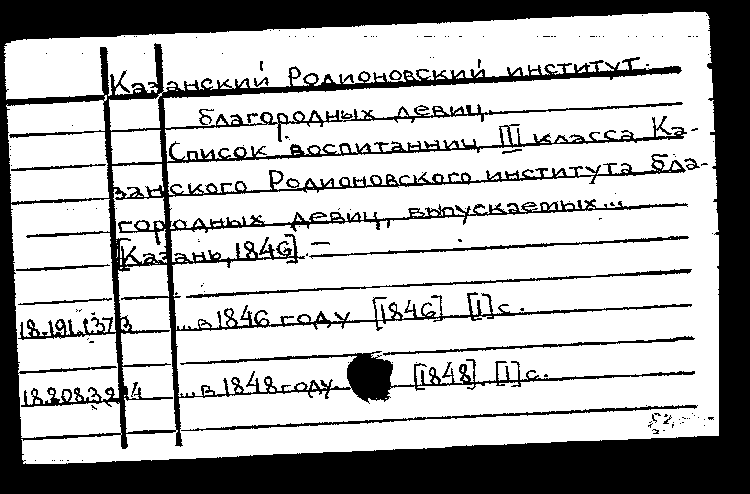 Казанский Родионовский институт
благородных девиц.
Список воспитанниц III класса Ка-
занского Родионовского института бла-
городных девиц, выпускаемых...
[Казань, 1846] —
...в 1846 году [1846] [1] с.
...в 1848 году [1848]. [1] с.